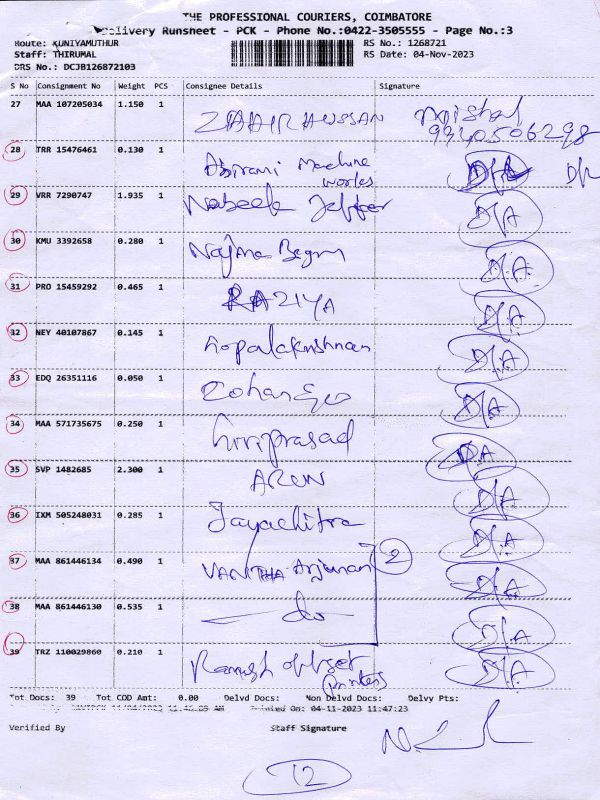 THE PROFESSIONAL COURIERS, COIMBATORE
Delivery Runsheet - PCK - Phone No.:0422-3505555 - Page No.:3
Route: KUNIYAMUTHUR RS No.: 1268721
Staff: THIRUMAL RS Date: 04-Nov-2023
DRS No.: DCJB126872103
S No Consignment No Weight PCS Consignee Details Signature
27 MAA 107205034 1.150 1 ZHAIR HUSSAN Mishal
9940506298
28 TRR 15476461 0.130 1 Abirami Machine works D/A D/A
29 VRR 7290747 1.935 1 Nabeela Jaffer D/A
30 KMU 3392658 0.280 1 Najma Begm D/A
31 PRO 15459292 0.465 1 RAZIYA D/A
32 NEY 40107867 0.145 1 Gopalakrishnan D/A
33 EDQ 26351116 0.050 1 D/A
34 MAA 571735675 0.250 1 Giriprasad D/A
35 SVP 1482685 2.300 1 ARUN D/A
36 IXM 505248031 0.285 1 Jayachitra D/A
37 MAA 861446134 0.490 1 VANITHA Arjunan 2 D/A
38 MAA 861446130 0.535 1 — do — D/A
39 TRZ 110029860 0.210 1 Ramesh offset printers D/A
Tot Docs: 39 Tot COD Amt: 0.00 Delvd Docs: Non Delvd Docs: Delvy Pts:
Printed On: 04-11-2023 11:47:23
Verified By Staff Signature
12